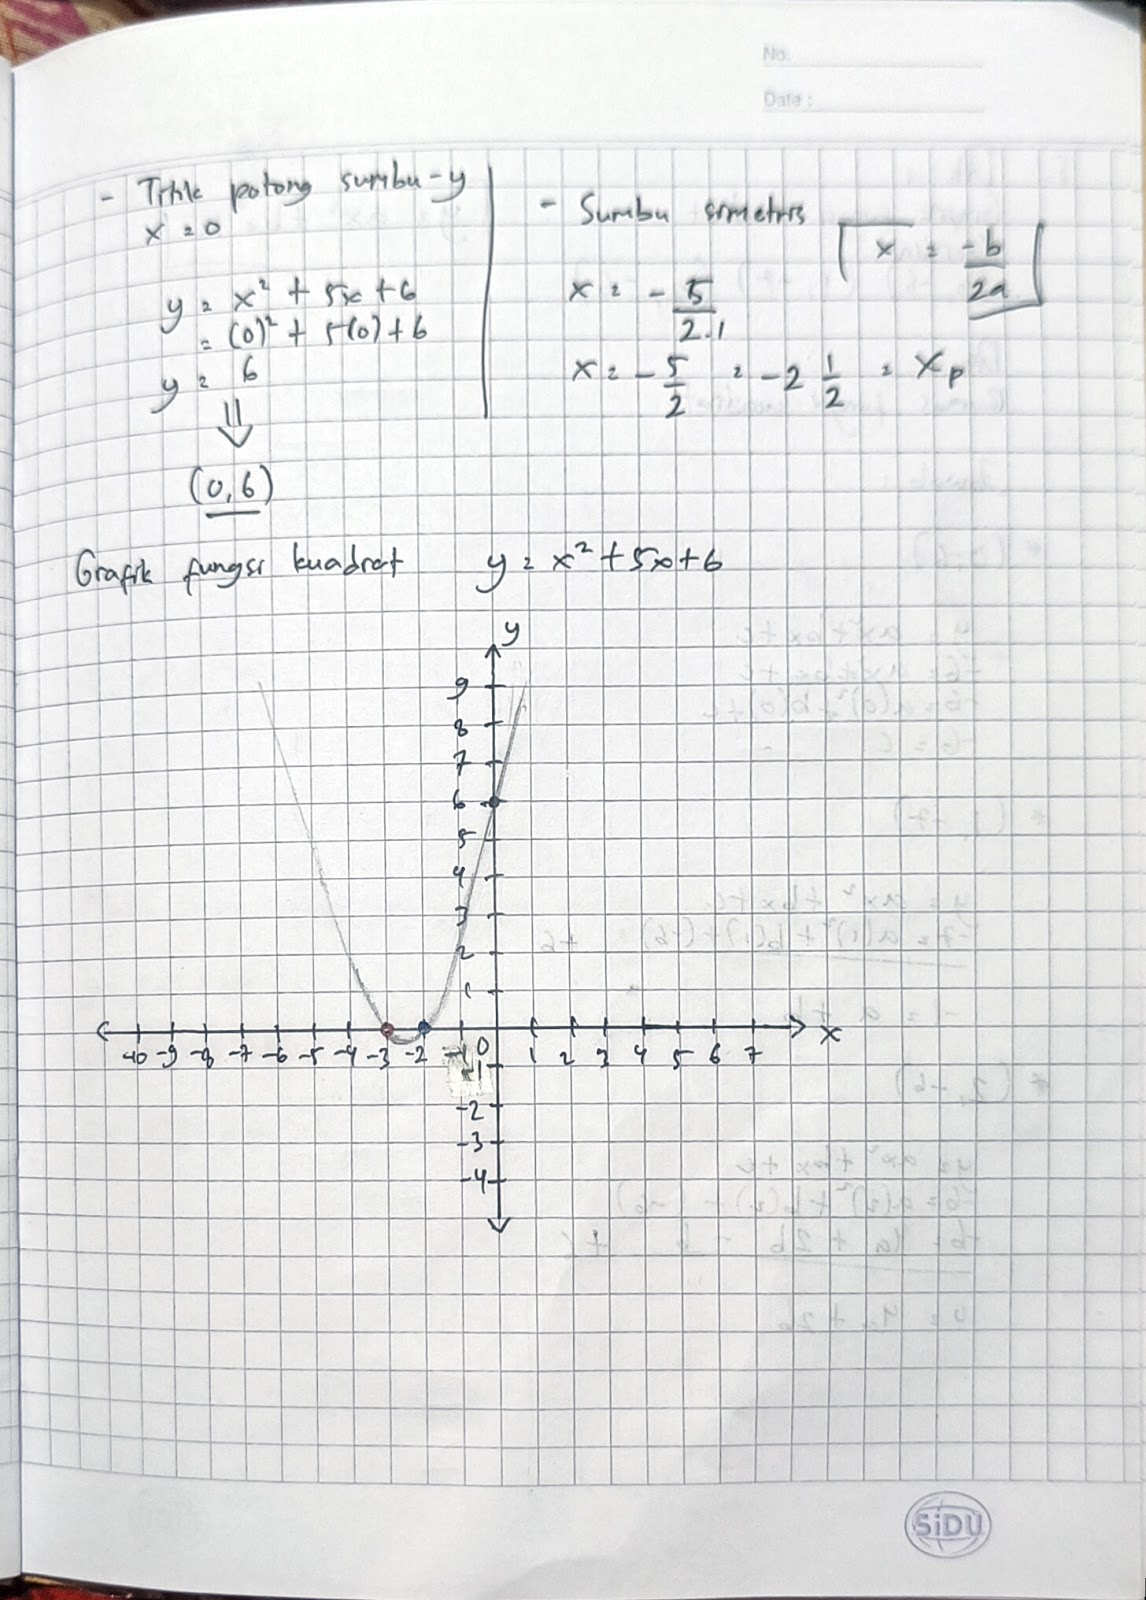 No.
Date :
- Titik potong sumbu-y
x = 0
y = x² + 5x + 6
= (0)² + 5(0) + 6
y = 6
⇓
(0,6)
- Sumbu simetris
x = -b/2a
x = - 5/2.1
x = - 5/2 = -2 1/2 = xp
Grafik fungsi kuadrat y = x² + 5x + 6
y
9
8
7
6
5
4
3
2
1
-10 -9 -8 -7 -6 -5 -4 -3 -2 -1 0 1 2 3 4 5 6 7 x
-1
-2
-3
-4
SiDU